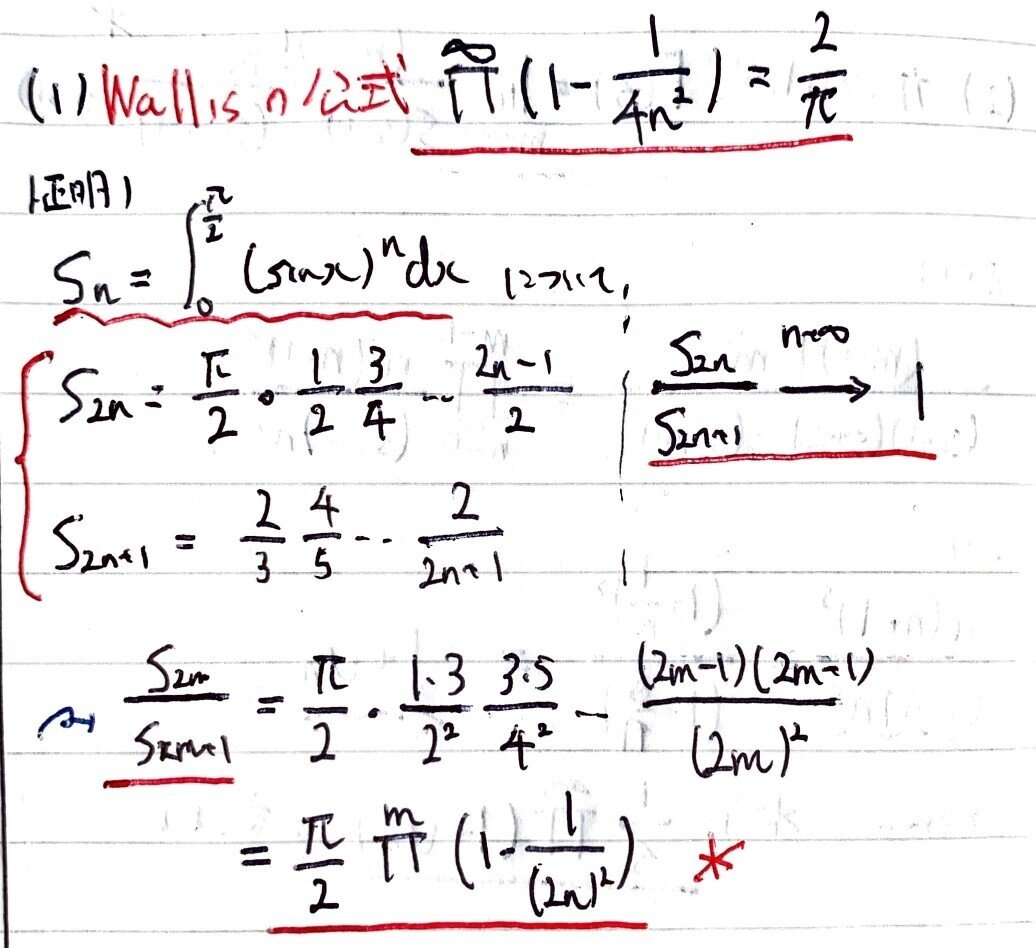 (1) Wallisの公式 ∏^∞ (1 - 1/4n²) = 2/π
証明)
Sn = ∫_0^{π/2} (sinx)^n dx について,
S_{2n} = π/2 · 1/2 3/4 … (2n-1)/2
S_{2n}/S_{2n+1} →^{n→∞} 1
S_{2n+1} = 2/3 4/5 … 2/(2n+1)
S_{2m}/S_{2m+1} = π/2 · 1·3/2² 3·5/4² … (2m-1)(2m+1)/(2m)²
= π/2 ∏^m (1 - 1/(2n)²) *